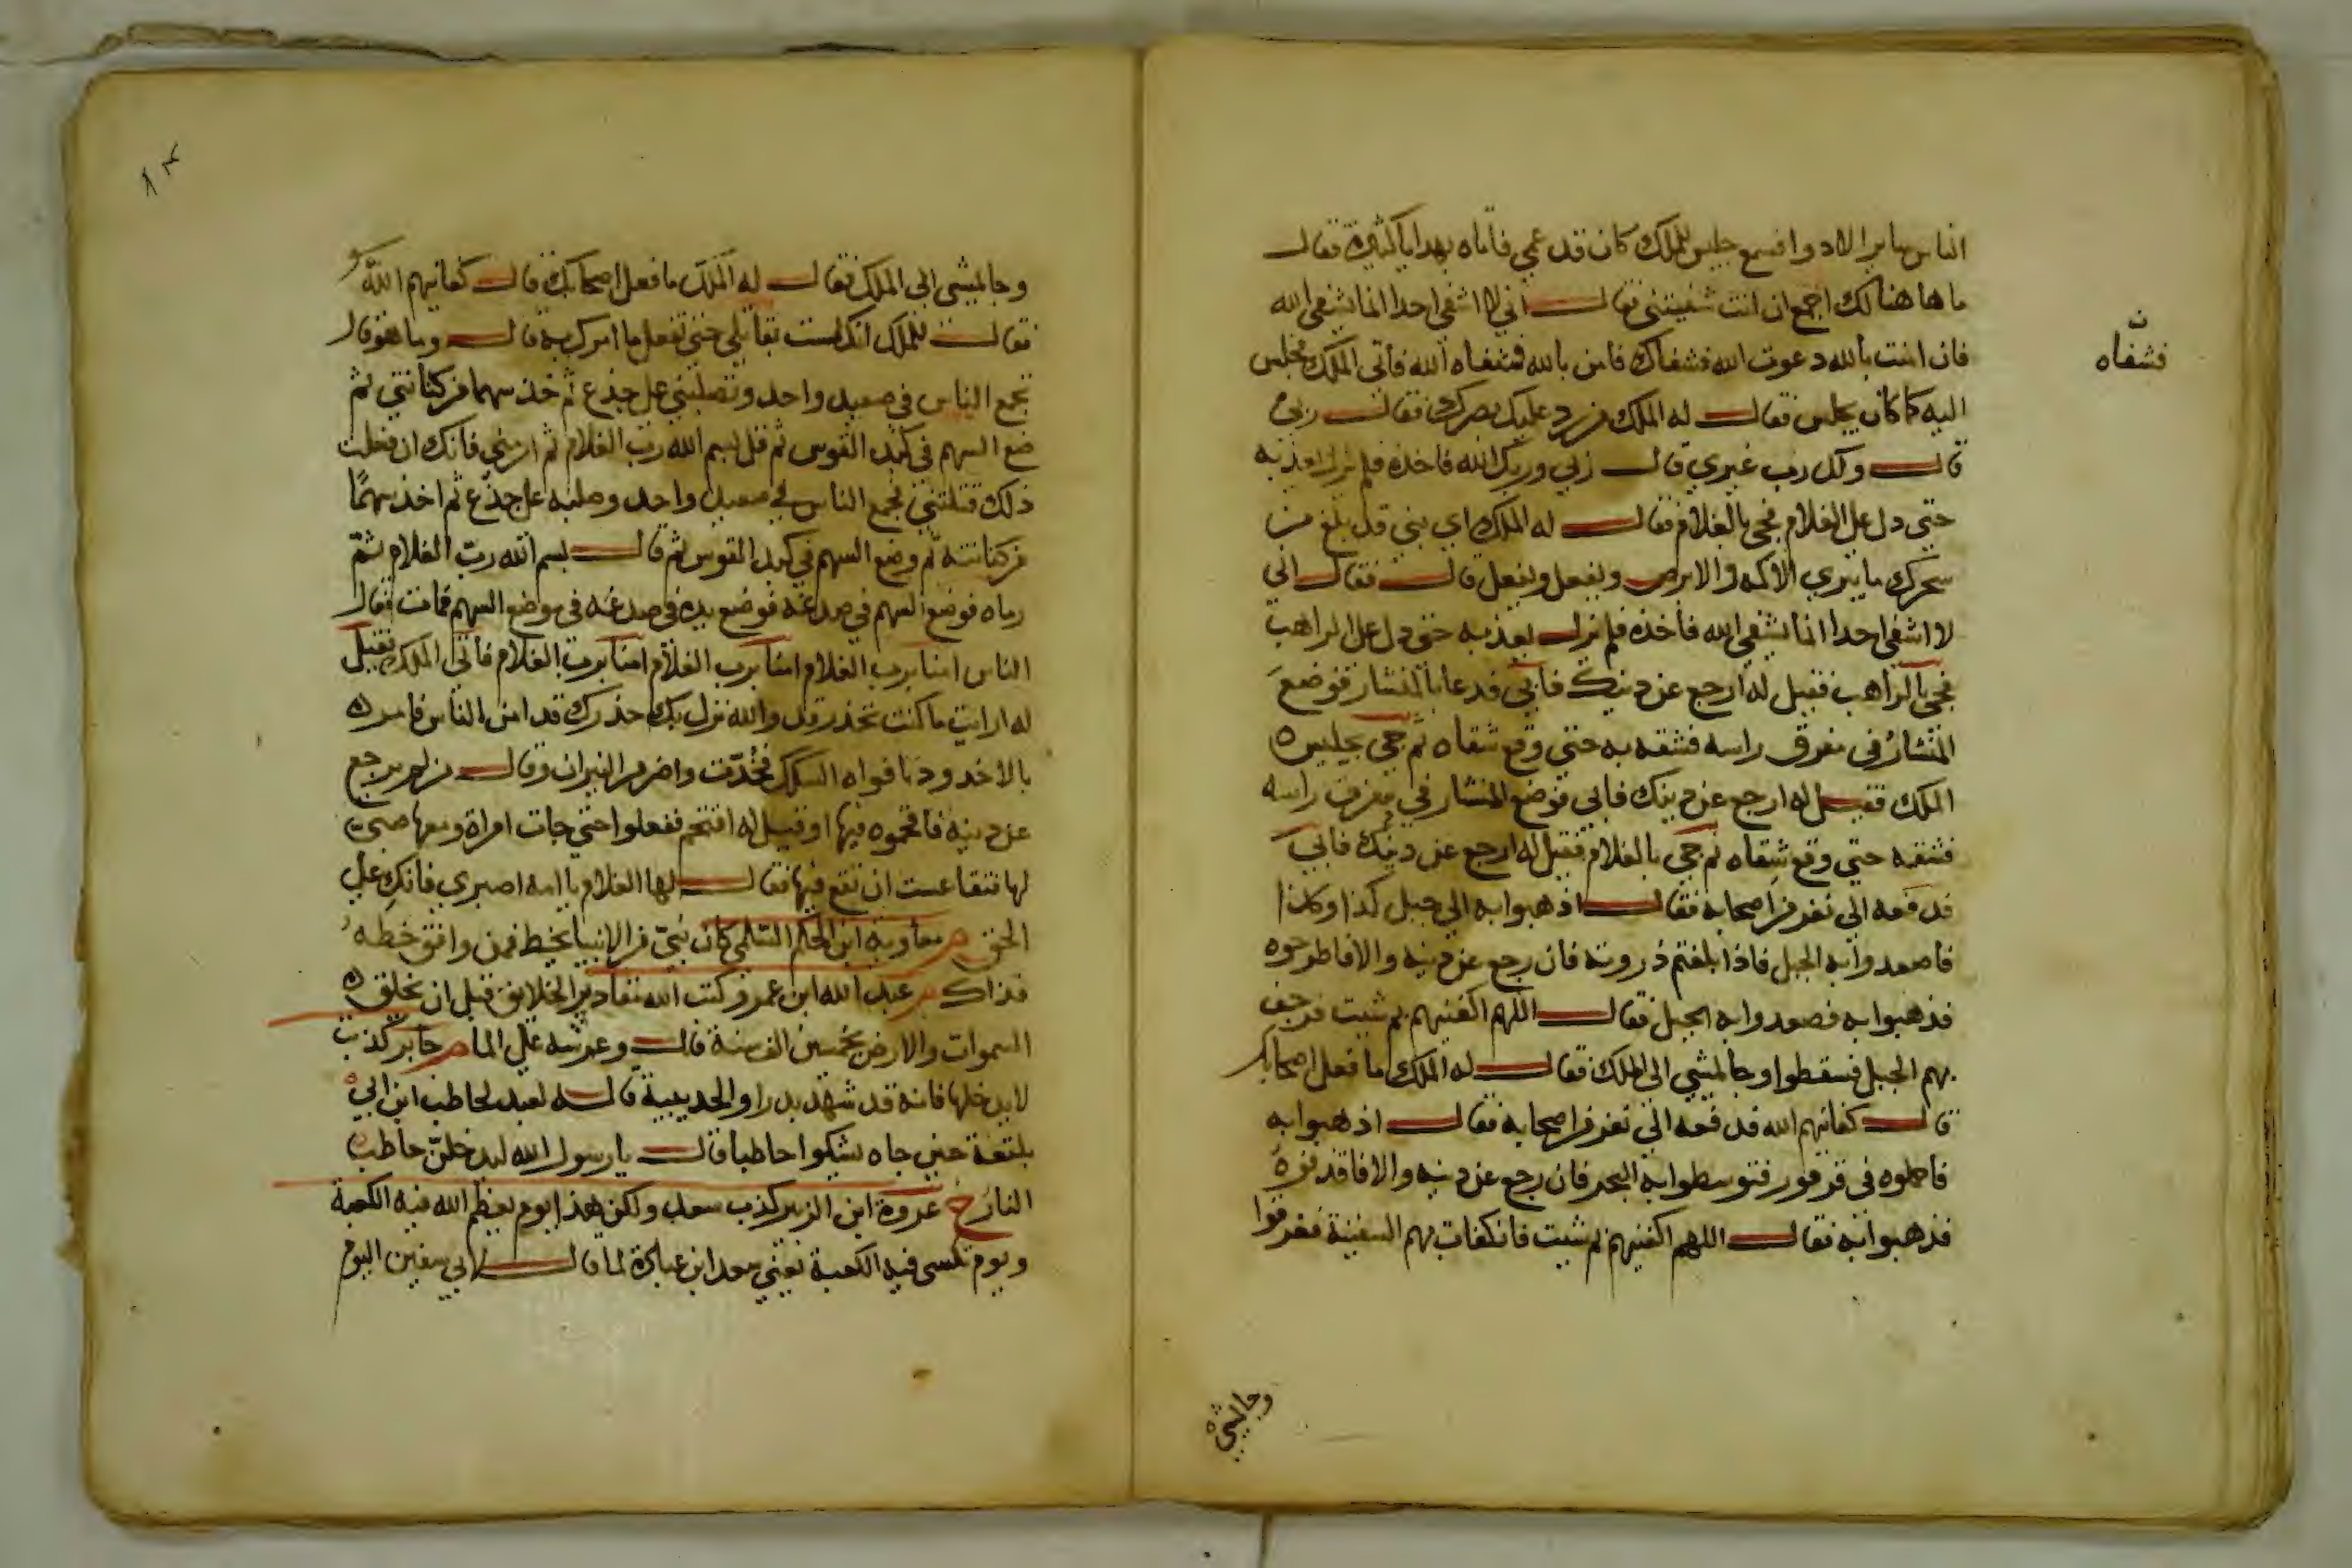 الناس ساير الادوا فسمع جليس للملك كان قد عمي فاتاه بهدايا كثيرة فقال
ما هاهنا لك اجمع ان انت شفيتني فقال اني لا اشفي احدا انما يشفي الله
فان امنت بالله دعوت الله فشفاك فامن بالله فشفاه الله فأتى الملك فجلس
فشفاه
اليه كما كان يجلس فقال له الملك من رد عليك بصرك فقال ربي
قال ولك رب غيري قال ربي وربك الله فاخذه فلم يزل يعذبه
حتى دل على الغلام فجي بالغلام فقال له الملك اي بني قد بلغ من
سحرك ما يبري الاكمه والابرص وتفعل وتفعل قال فقال اني
لا اشفي احدا انما يشفي الله فأخذه فلم يزل يعذبه حتى دل على الراهب
فجي بالراهب فقيل له ارجع عن دينك فأبى فدعا بالمنشار فوضع
المنشار في مفرق راسه فشقه به حتى وقع شقاه ثم جي بجليس
الملك فقيل له ارجع عن دينك فابى فوضع المنشار في مفرق راسه
فشقه حتى وقع شقاه ثم جي بالغلام فقيل له ارجع عن دينك فابى
فدفعه الى نفر من اصحابه فقال اذهبوا به الى جبل كذا وكذا
فاصعدوا به الجبل فاذا بلغتم ذروته فان رجع عن دينه والا فاطرحوه
فذهبوا به فصعدوا به الجبل فقال اللهم اكفنيهم بم شيت فرجف
بهم الجبل فسقطوا وجا يمشي الى الملك فقال له الملك ما فعل اصحابك
قال كفانيهم الله فدفعه الى نفر من اصحابه فقال اذهبوا به
فاحملوه في قرقور فتوسطوا به البحر فان رجع عن دينه والا فاقذفوه
فذهبوا به فقال اللهم اكفنيهم بم شيت فانكفات بهم السفينة فغرقوا
وجا يمشي
وجا يمشي الى الملك فقال له الملك ما فعل اصحابك قال كفانيهم الله
فقال للملك انك لست بقاتلي حتى تفعل ما امرك به قال وما هو قال
تجمع الناس في صعيد واحد وتصلبني على جذع ثم خذ سهما من كنانتي ثم
ضع السهم في كبد القوس ثم قل بسم الله رب الغلام ثم ارمني فانك ان فعلت
ذلك قتلتني فجمع الناس في صعيد واحد وصلبه على جذع ثم اخذ سهمًا
من كنانته ثم وضع السهم في كبد القوس ثم قال بسم الله رب الغلام ثم
رماه فوضع السهم في صدغه فوضع يده في صدغه في موضع السهم فمات فقال
الناس امنا برب الغلام امنا برب الغلام امنا برب الغلام فأتى الملك فقيل
له ارايت ما كنت تحذر قد والله نزل بك حذرك قد امن الناس فامر
بالاخدود بافواه السكك فخُدّت واضرم النيران وقال من لم يرجع
عن دينه فاقحموه فيها او قيل له اقتحم ففعلوا حتى جات امراة ومعها صبي
لها فتقاعست ان تقع فيها فقال لها الغلام يا امه اصبري فانكِ على
الحق م معاوية ابن الحكم السلمي كان نبيّ من الانبيا يخط فمن وافق خطه
فذاك م عبد الله ابن عمرو كتب الله مقادير الخلايق قبل ان يخلق
السموات والارض بخمسين الف سنة قال وعرشه على الما م جابر كذبت
لا يدخلها فانه قد شهد بدرا والحديبية قاله لعبد لحاطب ابن ابي
بلتعة حين جاه يشكوا حاطبا قال يا رسول الله ليدخلنّ حاطب
النار خ عروة ابن الزبير كذب سعد ولكن هذا يوم يعظم الله فيه الكعبة
ويوم تكسى فيه الكعبة يعني سعد ابن عبادة لما قال لابي سفين اليوم